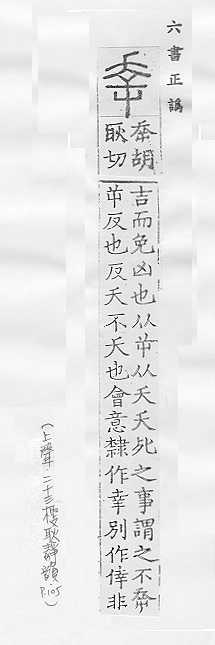 六書正譌
㚔胡
耿切
吉而免凶也从屰从夭夭死之事謂之不㚔
屰反也反夭不夭也會意隸作幸別作倖非
(上聲.二十三梗耿靜韻
P.105)